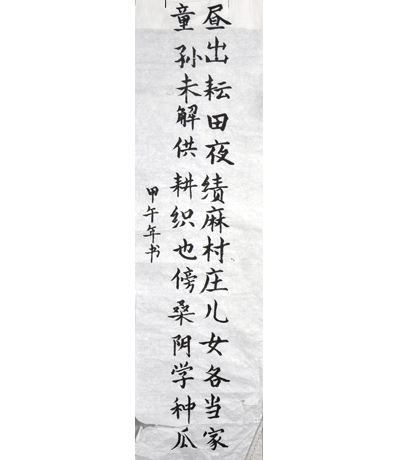 昼出耘田夜绩麻村庄儿女各当家
童孙未解供耕织也傍桑阴学种瓜
甲午年书